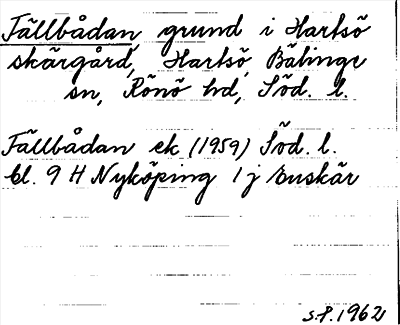 Fällbådan, grund i Hartsö
skärgård, Hartsö, Bälinge
sn, Rönö hd, Söd. l.
Fällbådan ek (1959) Söd. l.
bl. 9 H Nyköping 1 j Enskär
S.P. 1962